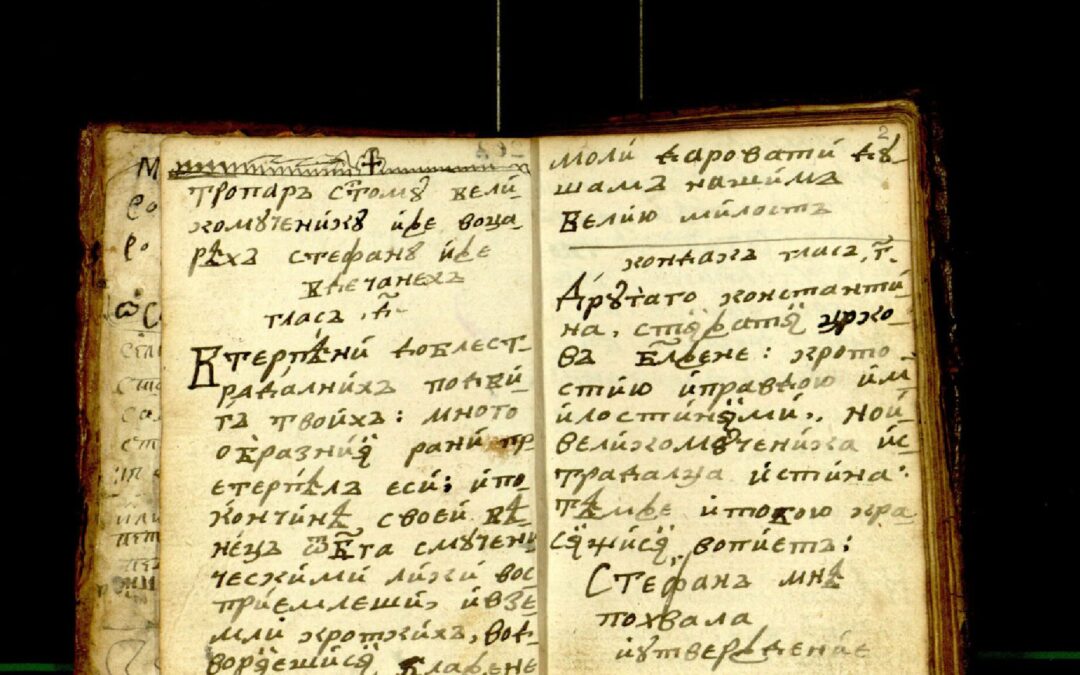 тропаръ ст҃омꙋ вели
комꙋченикꙋ иже воца
рѣхъ стефанꙋ иже
вдечанехъ
гласъ, д҃
Втерпѣни доблест
радалнихъ подви
гъ твоихъ: много
ѡбразнїѧ рани пр
етерпѣлъ еси; ипо
кончинѣ своей вѣ
нецъ ѿб҃га смꙋчени
ческими лики вос
приемлеши, ивзе
мли кроткихъ, вод
ворѧешисѧ блажене
2
моли даровати дꙋ
шамъ нашимъ
велию милостъ
кондакъ гласъ, г҃.
Дрꙋгаго константи
на, стѧжатѧ црко
въ бл҃жене: крото
стию иправдою им
илостинѧми, ной
великомꙋченика ис
традалца истина:
тѣмже итобою кра
сѧщисѧ, вопиетъ;
Стефанъ мнѣ
похвала
иꙋтверждение